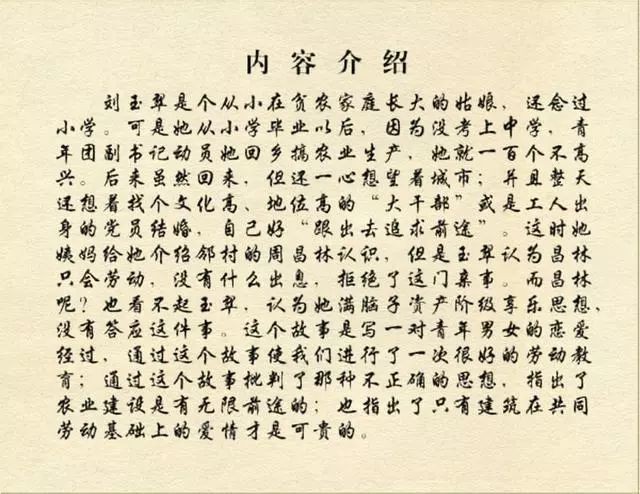 内容介绍
刘玉翠是个从小在贫农家庭长大的姑娘，还念过
小学。可是她从小学毕业以后，因为没考上中学，青
年团副书记动员她回乡搞农业生产，她就一百个不高
兴。后来虽然回来，但还一心想望着城市；并且整天
还想着找个文化高、地位高的“大干部”或是工人出
身的党员结婚，自己好“跟出去追求前途”。这时她
姨妈给她介绍邻村的周昌林认识，但是玉翠认为昌林
只会劳动，没有什么出息，拒绝了这门亲事。而昌林
呢？也看不起玉翠，认为她满脑子资产阶级享乐思想，
没有答应这件事。这个故事是写一对青年男女的恋爱
经过，通过这个故事使我们进行了一次很好的劳动教
育；通过这个故事批判了那种不正确的思想，指出了
农业建设是有无限前途的；也指出了只有建筑在共同
劳动基础上的爱情才是可貴的。